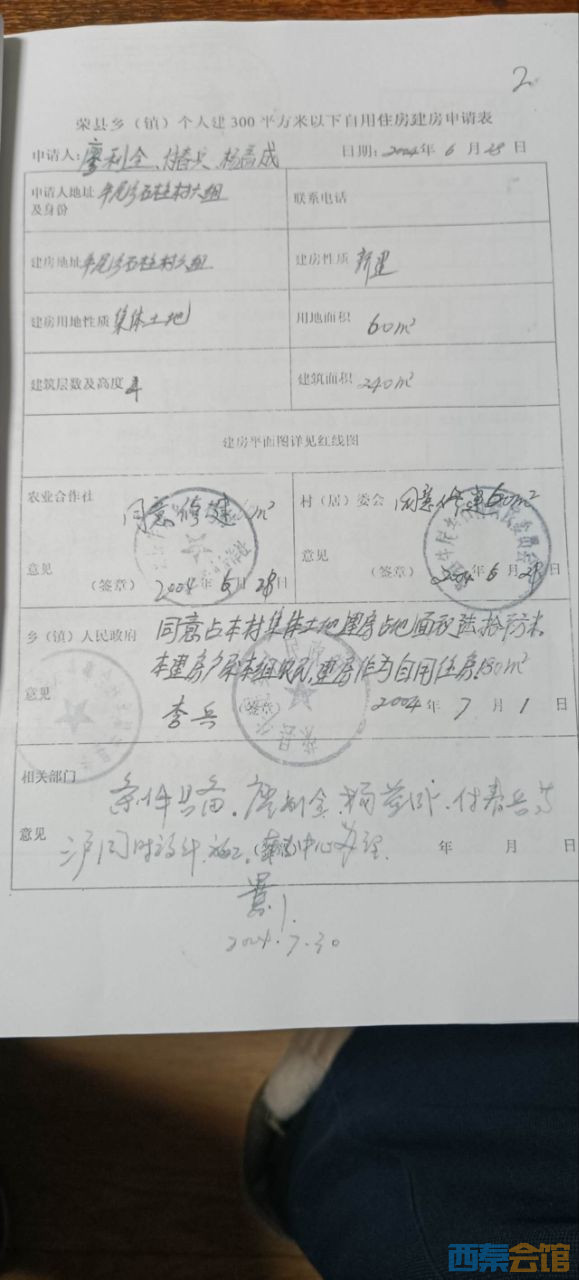 2
荣县乡（镇）个人建300平方米以下自用住房建房申请表
申请人：廖利全、付春兵 杨
日期：2004年6月28日
申请人地址及身份 石柱村六组
联系电话
建房地址 石柱村六组
建房性质 新建
建房用地性质 集体土地
用地面积 60m²
建筑层数及高度 4
建筑面积 240m²
建房平面图详见红线图
农业合作社
同意修建 m²
意见
（签章） 2004年6月28日
村（居）委会 同意修建60m²
意见
（签章） 2004年6月28日
乡（镇）人民政府 同意占本村集体土地建房占地面积陆拾平方米，
本建房户系本组农民，建房作为自用住房180m²
意见 李兵 （签章） 2004年7月1日
相关部门 条件具备。廖利全、杨 付春兵等
意见 三户同时设计、施工。 中心办理。 年 月 日
2004.7.30
西秦会馆